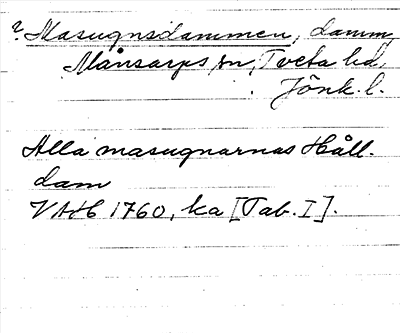 ? Masugnsdammen, damm
Månsarps sn, Tveta hd,
Jönk. l.
Alla masugnarnas Håll.
dam
VAH 1760, ka [Tab. I].